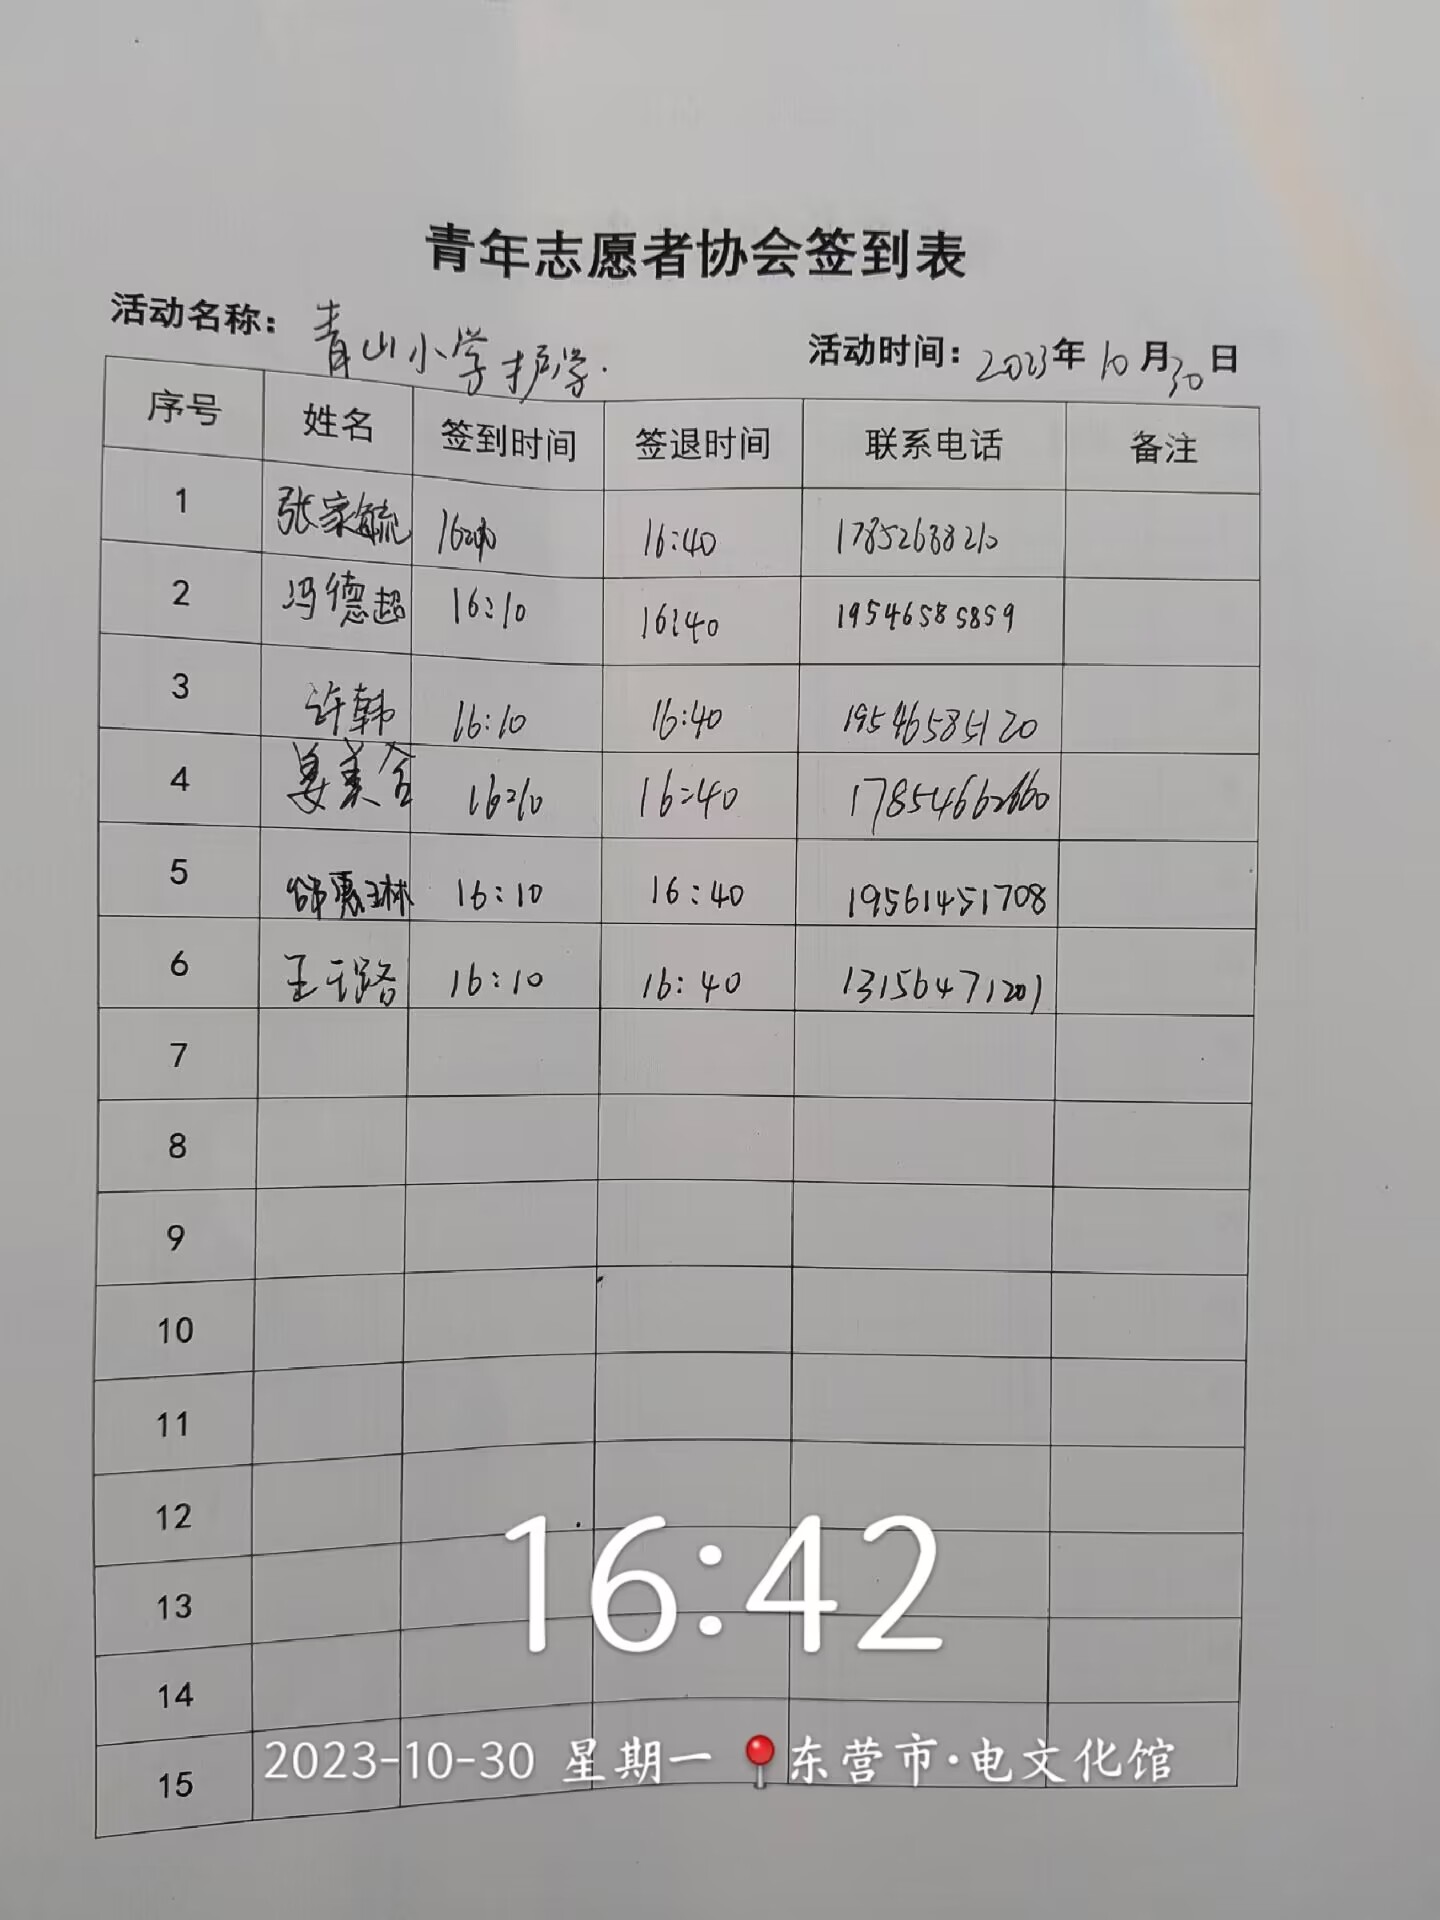 青年志愿者协会签到表
活动名称：青山小学护学. 活动时间：2023年10月30日
序号 姓名 签到时间 签退时间 联系电话 备注
1 张家毓 16:40 17852688210
2 冯德超 16:10 16:40 19546585859
3 许韩 16:10 16:40 19546585120
4 姜美含 16:10 16:40
5 惠琳 16:10 16:40 19561451708
6 王 路 16:10 16:40 13156471201
7
8
9
10
11
12
13
14
15
16:42
2023-10-30 星期一 📍东营市·电文化馆